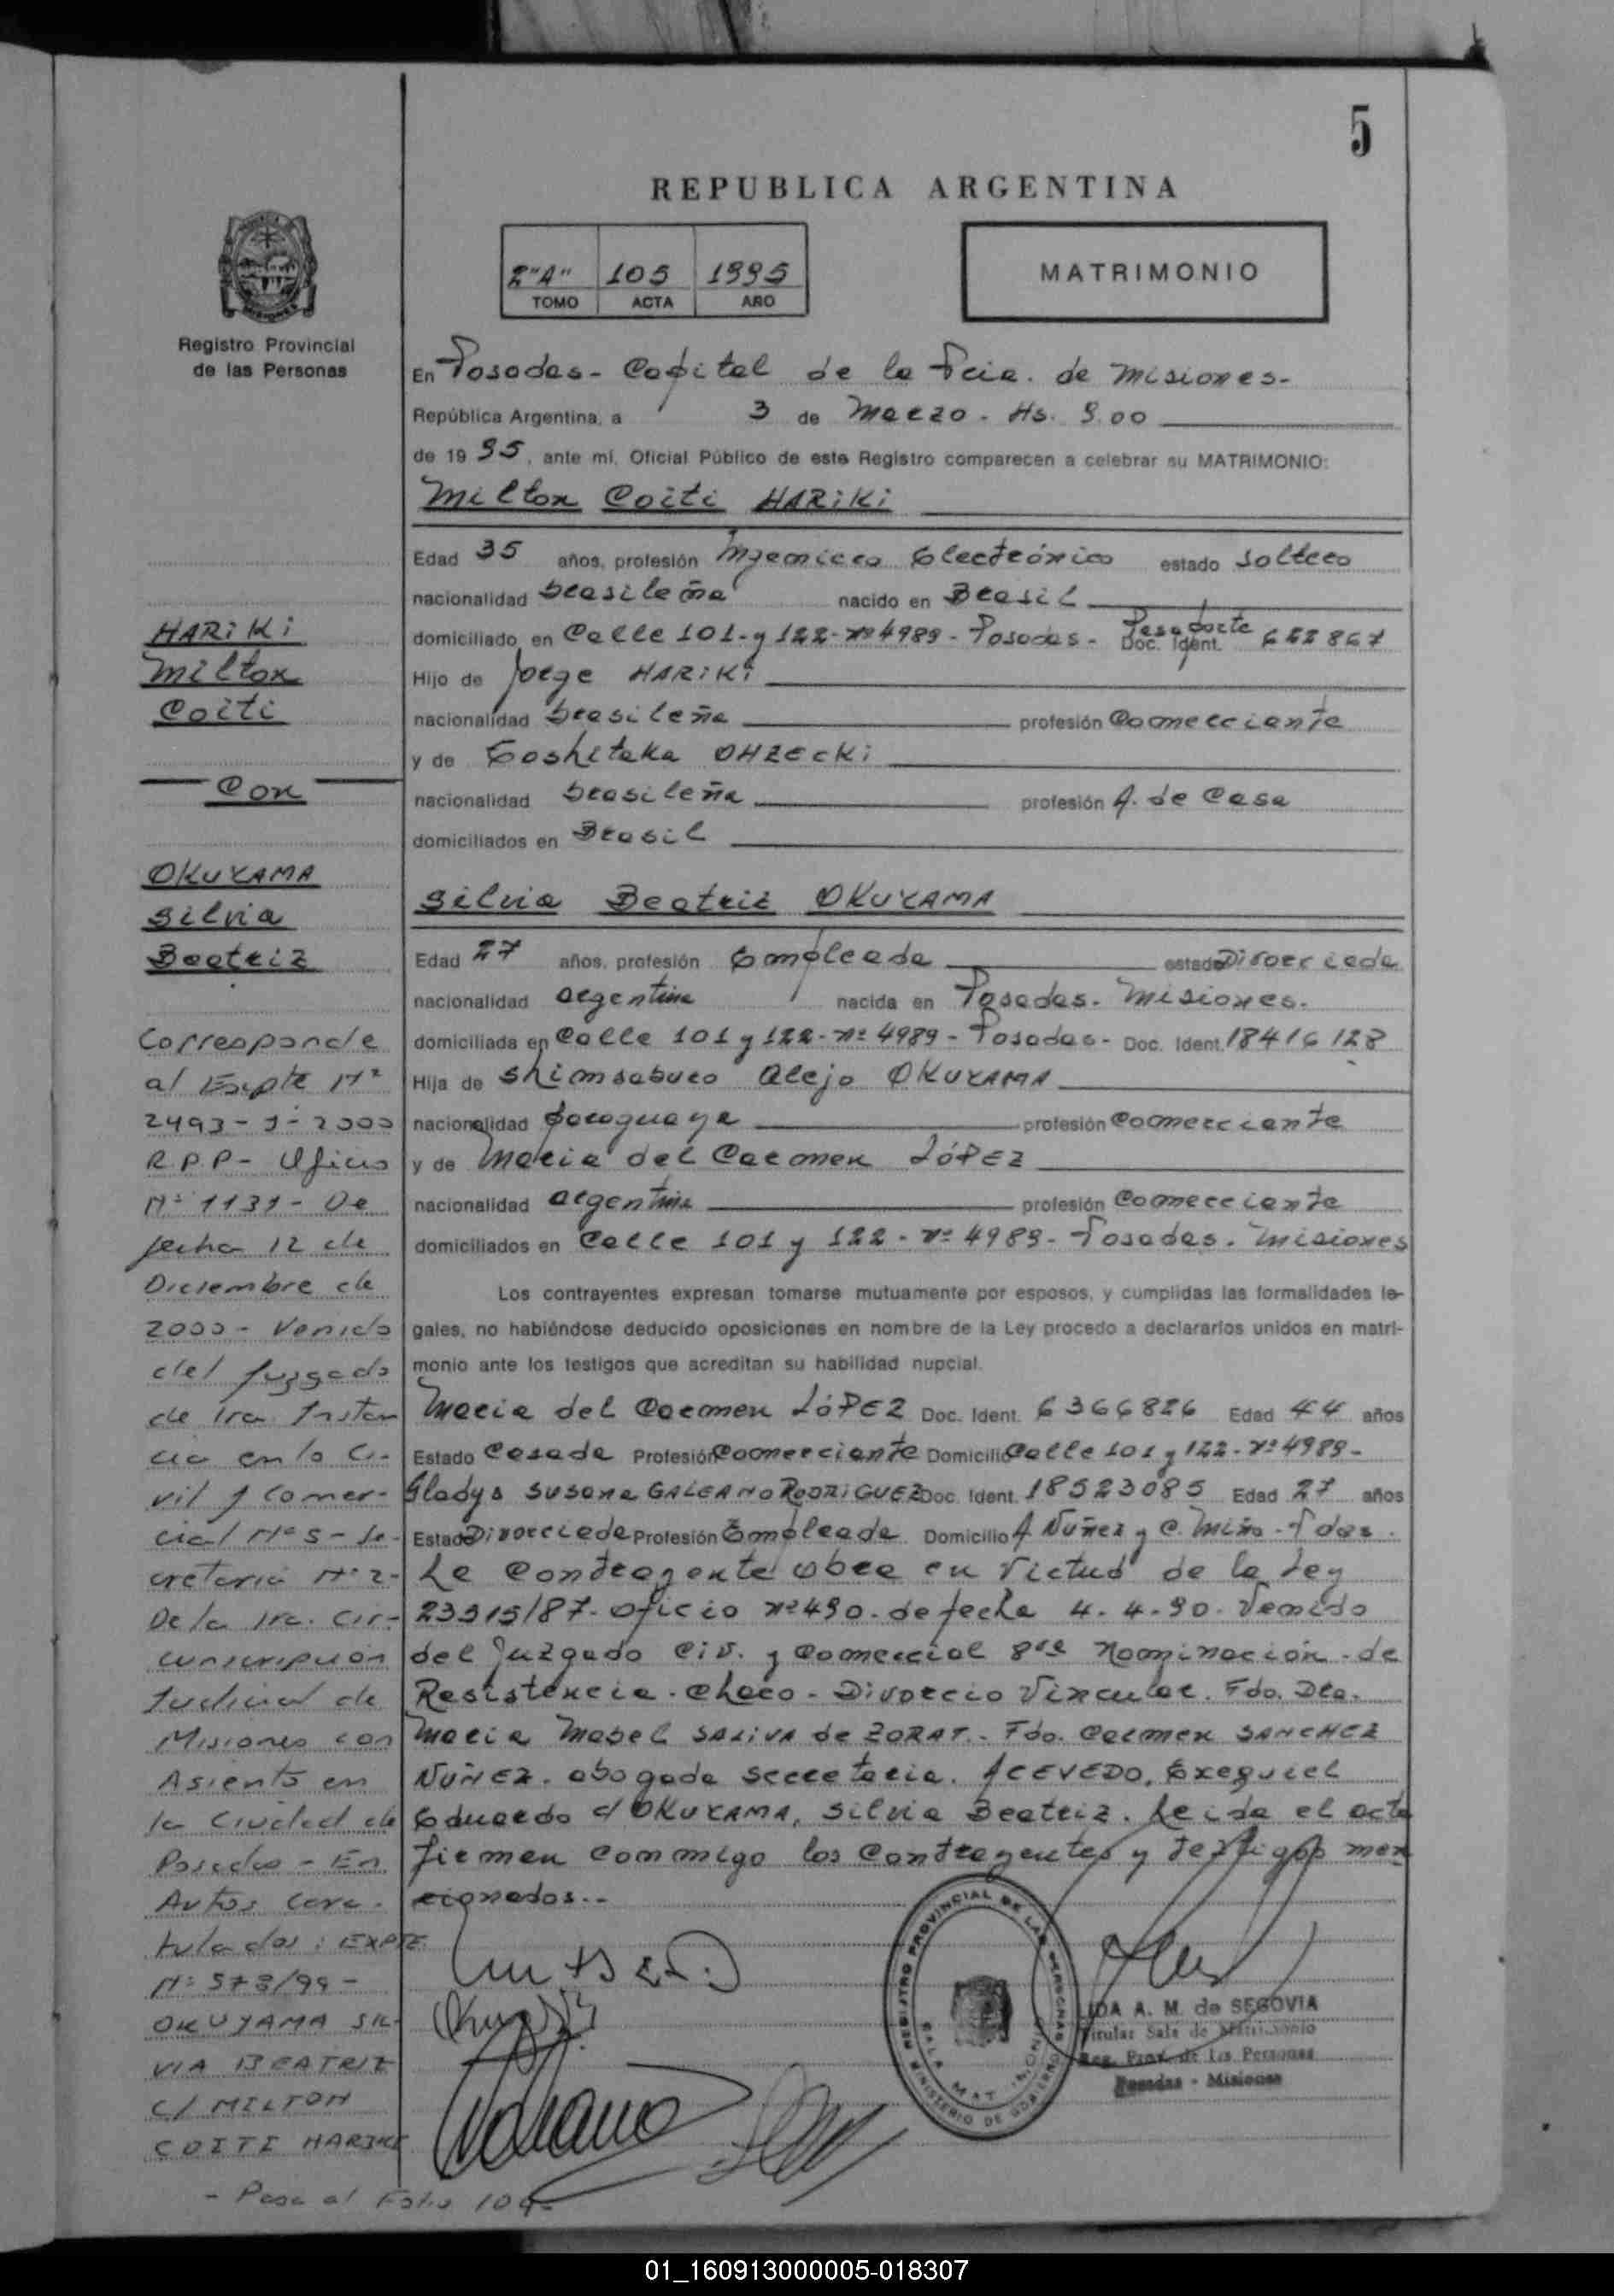 5
REPUBLICA ARGENTINA
2"A" 105 1995
TOMO ACTA AÑO
MATRIMONIO
Registro Provincial
de las Personas
En Posadas - Capital de la Pcia. de Misiones-
República Argentina, a 3 de Marzo - Hs. 9.00
de 19 95, ante mí, Oficial Público de este Registro comparecen a celebrar su MATRIMONIO:
Milton Coiti HARIKI
Edad 35 años, profesión Ingeniero Electrónico estado Soltero
nacionalidad brasileña nacido en Brasil
domiciliado en Calle 101-y 122- nº 4989 - Posadas - Pasaporte Doc. Ident. 622867
Hijo de Jorge HARIKI
nacionalidad brasileña profesión Comerciante
y de Eoshitaka OHZECKI
nacionalidad brasileña profesión A. de Casa
domiciliados en Brasil
Silvia Beatriz OKUYAMA
Edad 27 años, profesión Empleada estado Divorciada
nacionalidad argentina nacida en Posadas. Misiones.
domiciliada en Calle 101 y 122 - nº 4989 - Posadas - Doc. Ident. 18416128
Hija de Shimsaburo Alejo OKUYAMA
nacionalidad paraguaya profesión Comerciante
y de Maria del Carmen LÓPEZ
nacionalidad argentina profesión Comerciante
domiciliados en Calle 101 y 122 - nº 4989 - Posadas. Misiones
Los contrayentes expresan tomarse mutuamente por esposos, y cumplidas las formalidades le-
gales, no habiéndose deducido oposiciones en nombre de la Ley procedo a declararlos unidos en matri-
monio ante los testigos que acreditan su habilidad nupcial.
Maria del Carmen LóPEZ Doc. Ident. 6366826 Edad 44 años
Estado Casada Profesión Comerciante Domicilio Calle 101 y 122 - nº 4989 -
Gladys Susana GALEANO RODRIGUEZ Doc. Ident. 18523085 Edad 27 años
Estado Divorciada Profesión Empleada Domicilio A. Nuñez y C. Miño - Pdas.
La Contrayente obra en Virtud de la Ley
23515/87 - oficio nº 490 - de fecha 4-4-90. Venido
del Juzgado Civ. y Comercial 8va Nominación - de
Resistencia - Chaco - Divorcio Vincular. Fdo. Dra.
Maria Mabel SALIVA de ZORAT. - Fdo. Carmen SANCHEZ
NUÑEZ. abogada secretaria. ACEVEDO, Exequiel
Eduardo c/ OKUYAMA, Silvia Beatriz. Leida el acta
firman conmigo los Contrayentes y testigos men
cionados.-
HARIKI
Milton
Coiti
Con
OKUYAMA
Silvia
Beatriz
Corresponde
al Expte Nº
2493-J-2000
R.P.P- Oficio
Nº 1131 - De
fecha 12 de
Diciembre de
2000 - Venido
del Juzgado
de 1ra. Instan
cia en lo Ci-
vil y Comer-
cial Nº 5 - Se-
cretaria Nº 2-
De la 1ra. Cir-
cunscripción
Judicial de
Misiones con
Asiento en
la Ciudad de
Posadas - En
Autos cara-
tulados: EXPTE
Nº 573/99 -
OKUYAMA SIL-
VIA BEATRIZ
C/ MILTON
COITI HARIKI
- Pasa al Folio 104-
REGISTRO PROVINCIAL DE LAS PERSONAS
MINISTERIO DE GOBIERNO
SALA MATRIMONIO
IDA A. M. de SEGOVIA
Titular Sala de Matrimonio
Reg. Prov. de las Personas
Posadas - Misiones
01_160913000005-018307